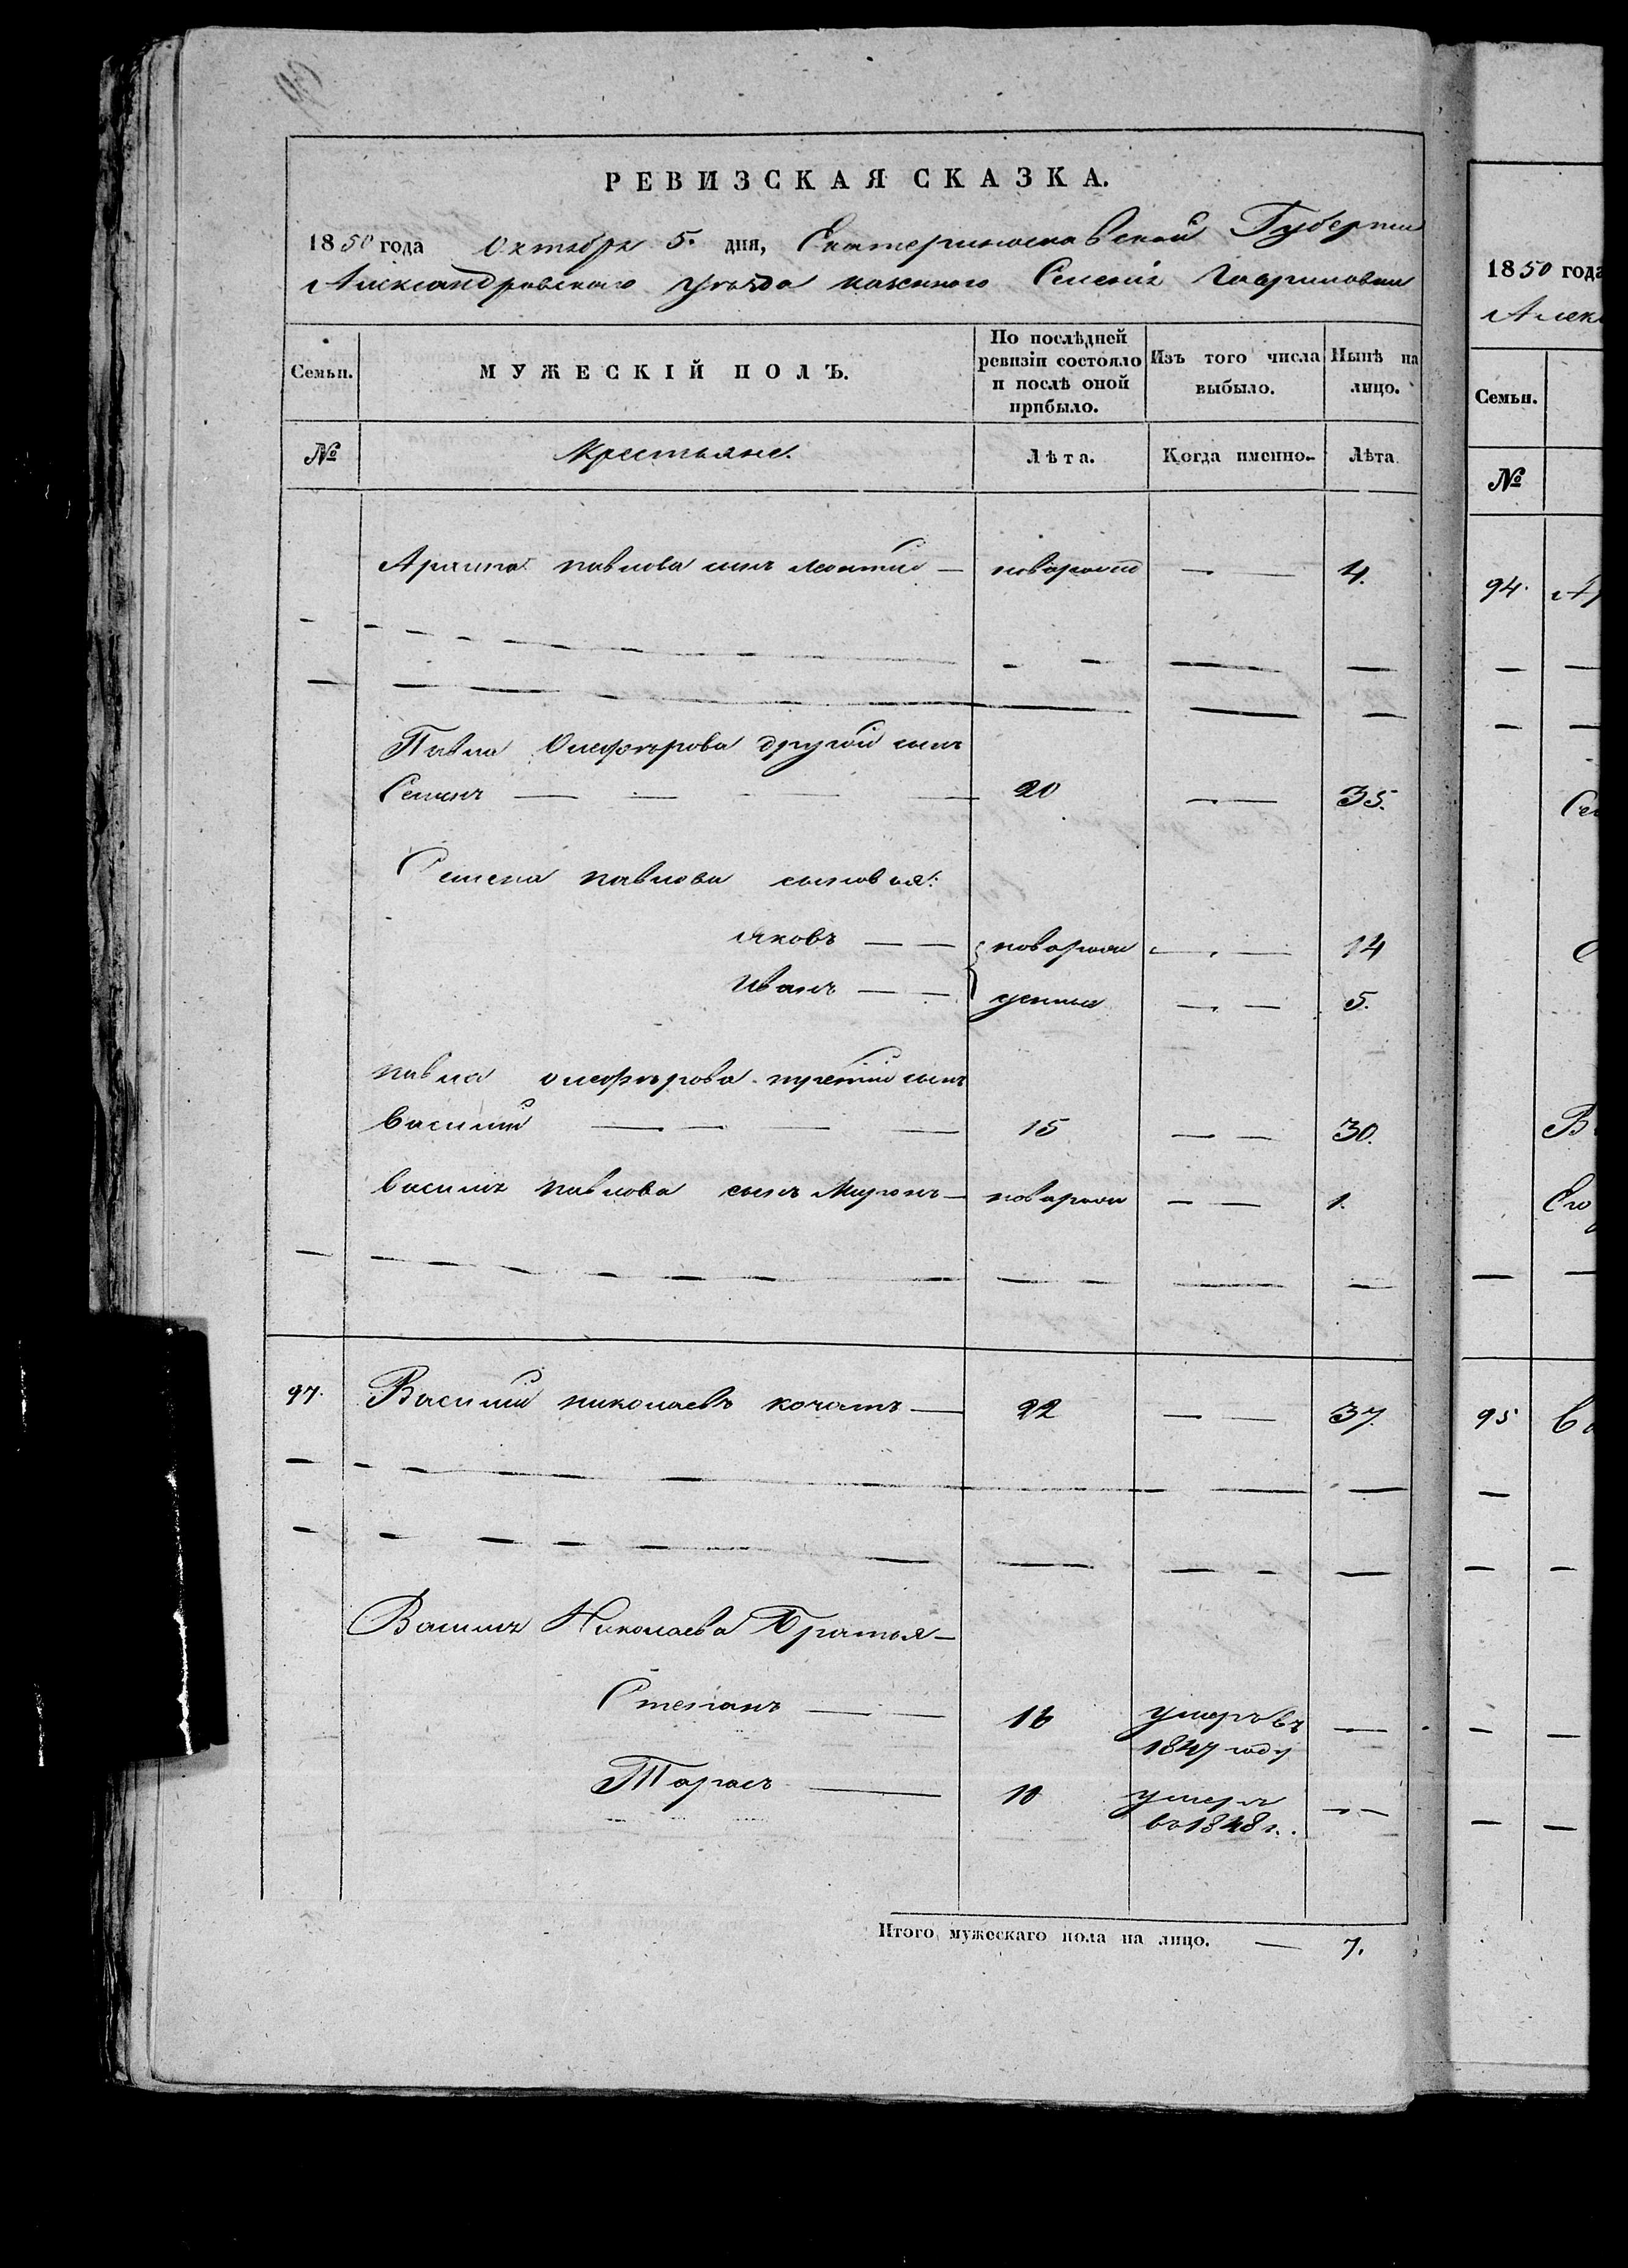 РЕВИЗСКАЯ СКАЗКА.
1850 года Октября 5. дня, Екатеринославской Губернии
Александровскаго уѣзда казеннаго Селенія Гавриловки
Семьи. МУЖЕСКІЙ ПОЛЪ. По послѣдней ревизіи состояло и послѣ оной прибыло. Изъ того числа выбыло. Нынѣ на лицо.
№ Крестьяне. Лѣта. Когда именно. Лѣта
павлова сынъ Леонтій — новорожд — — 4.
Павла Олефѣрова другой сынъ
Семенъ — — — — 20 — — 35.
Семена павлова сыновья:
Яковъ — — новорож — — 14
Иванъ — — денныя — — 5.
павла олефѣрова третій сынъ
василій — — — — 15 — — 30.
василія павлова сынъ Миронъ — новорож — — 1.
97. Василій николаевъ кочатъ — 22 — — 37.
Василія Николаева Братья —
Степанъ — — 16 умеръ въ —
1847 году
Тарасъ — 10 умеръ — —
въ 1848 г.
Итого мужескаго пола на лицо. — 7.
1850 года
Алек
Семьи.
№
94.
95